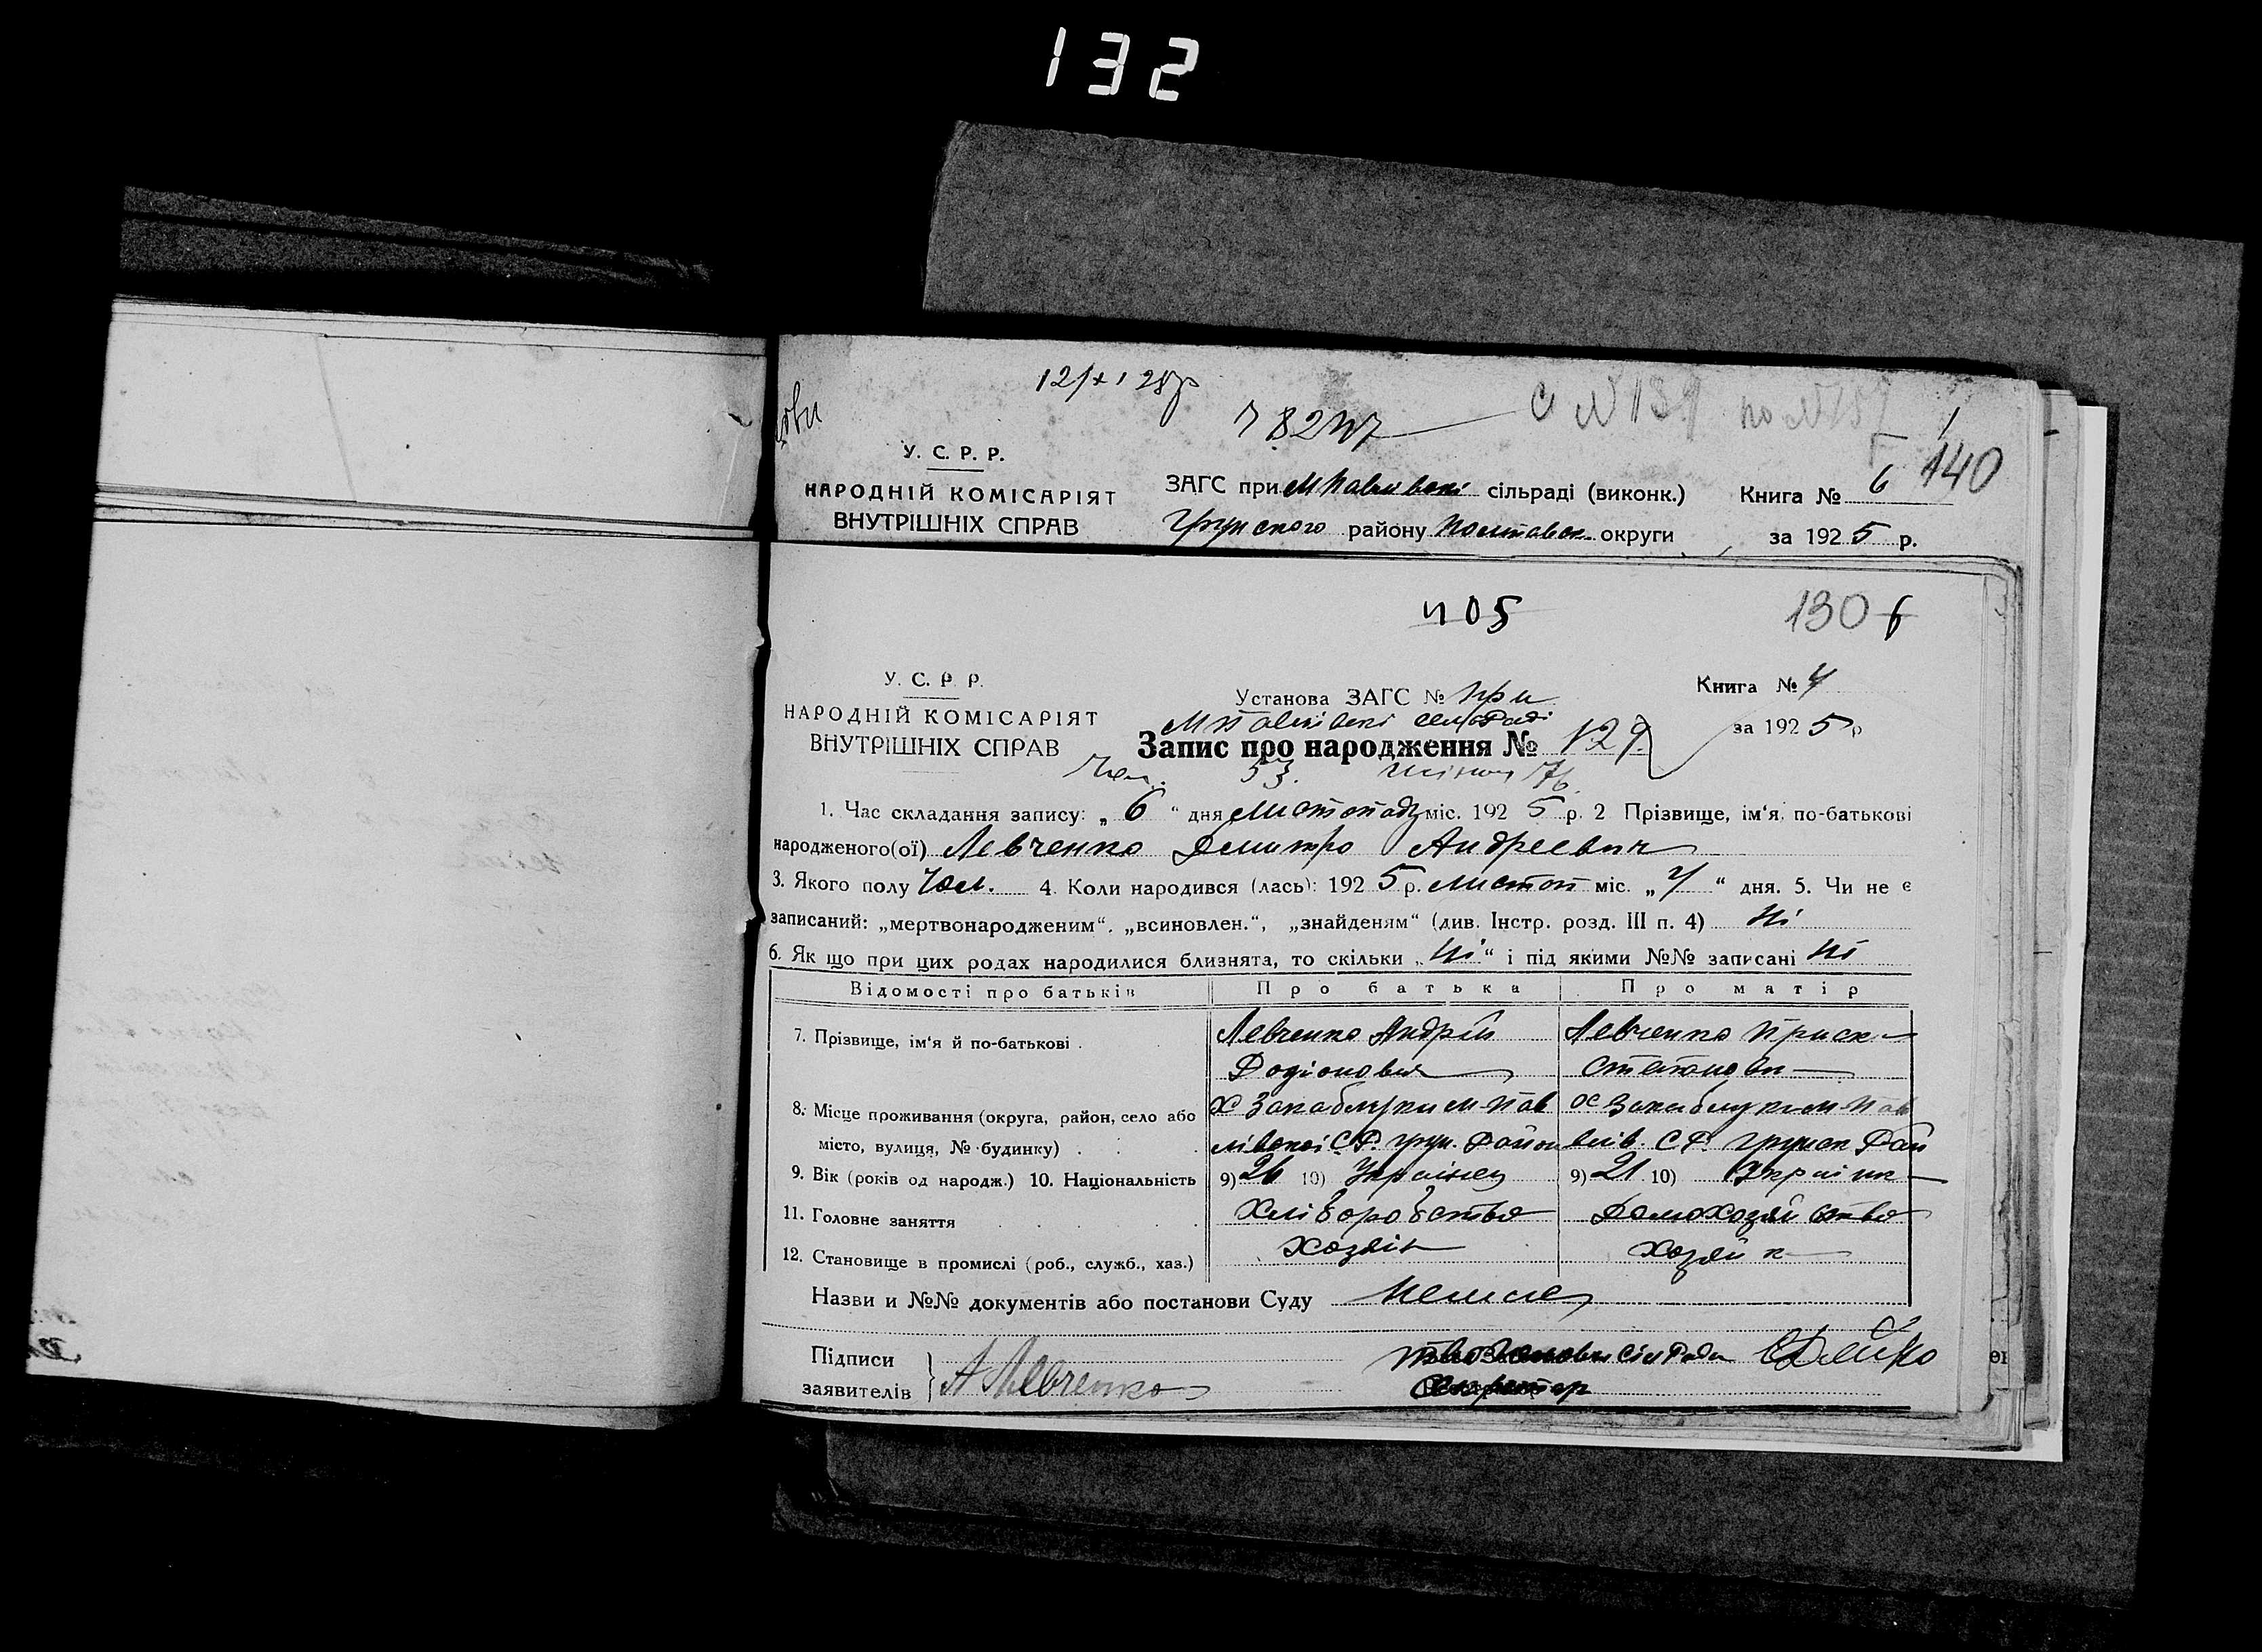 132
140
У. С. Р. Р.
НАРОДНІЙ КОМІСАРІЯТ
ВНУТРІШНІХ СПРАВ
ЗАГС при М Павлівскі сільраді (виконк.)
Грунского району Полтавск округи
Книга № 6
за 1925 р.
405
130
У. С. Р. Р.
НАРОДНІЙ КОМІСАРІЯТ
ВНУТРІШНІХ СПРАВ
Установа ЗАГС № при
М Павлівскі сельраді
Запис про народження № 129
Книга № 4
за 1925 р
Чол. 53. жіноч 76.
1. Час складання запису: „ 6 “ дня Листопаду міс. 1925 р. 2 Прізвище, ім'я, по-батькові
народженого(ої) Левченко Дмитро Андреевич
3. Якого полу Чол. 4. Коли народився (лась): 1925 р. листоп міс. „ 4 “ дня. 5. Чи не є
записаний: „мертвонародженим“. „всиновлен.“, „знайденям“ (див. Інстр. розд. III п. 4) Ні
6. Як що при цих родах народилися близнята, то скільки „ Ні “ і під якими №№ записані Ні
Відомості про батьків Про батька Про матір
7. Прізвище, ім'я й по-батькові . Левченко Андрій Левченко Приск
Родіонович Степанови
8. Місце проживання (округа, район, село або х Закаблуки М-Пав х Закаблуки М-Пав
місто, вулиця, № будинку) . . . лівскоі С.Р. грун. Район влів. С Р. грунск Рай
9. Вік (років од народж.) 10. Національність 9) 26 10) Українец 9) 21 10) Українк
11. Головне заняття . . . . Хліборобство Домохозяйство
12. Становище в промислі (роб., служб., хаз.) Хозяін Хозяйк
Назви и №№ документів або постанови Суду Немае
Підписи
заявителів } А Левченко
СілРади
Секретар